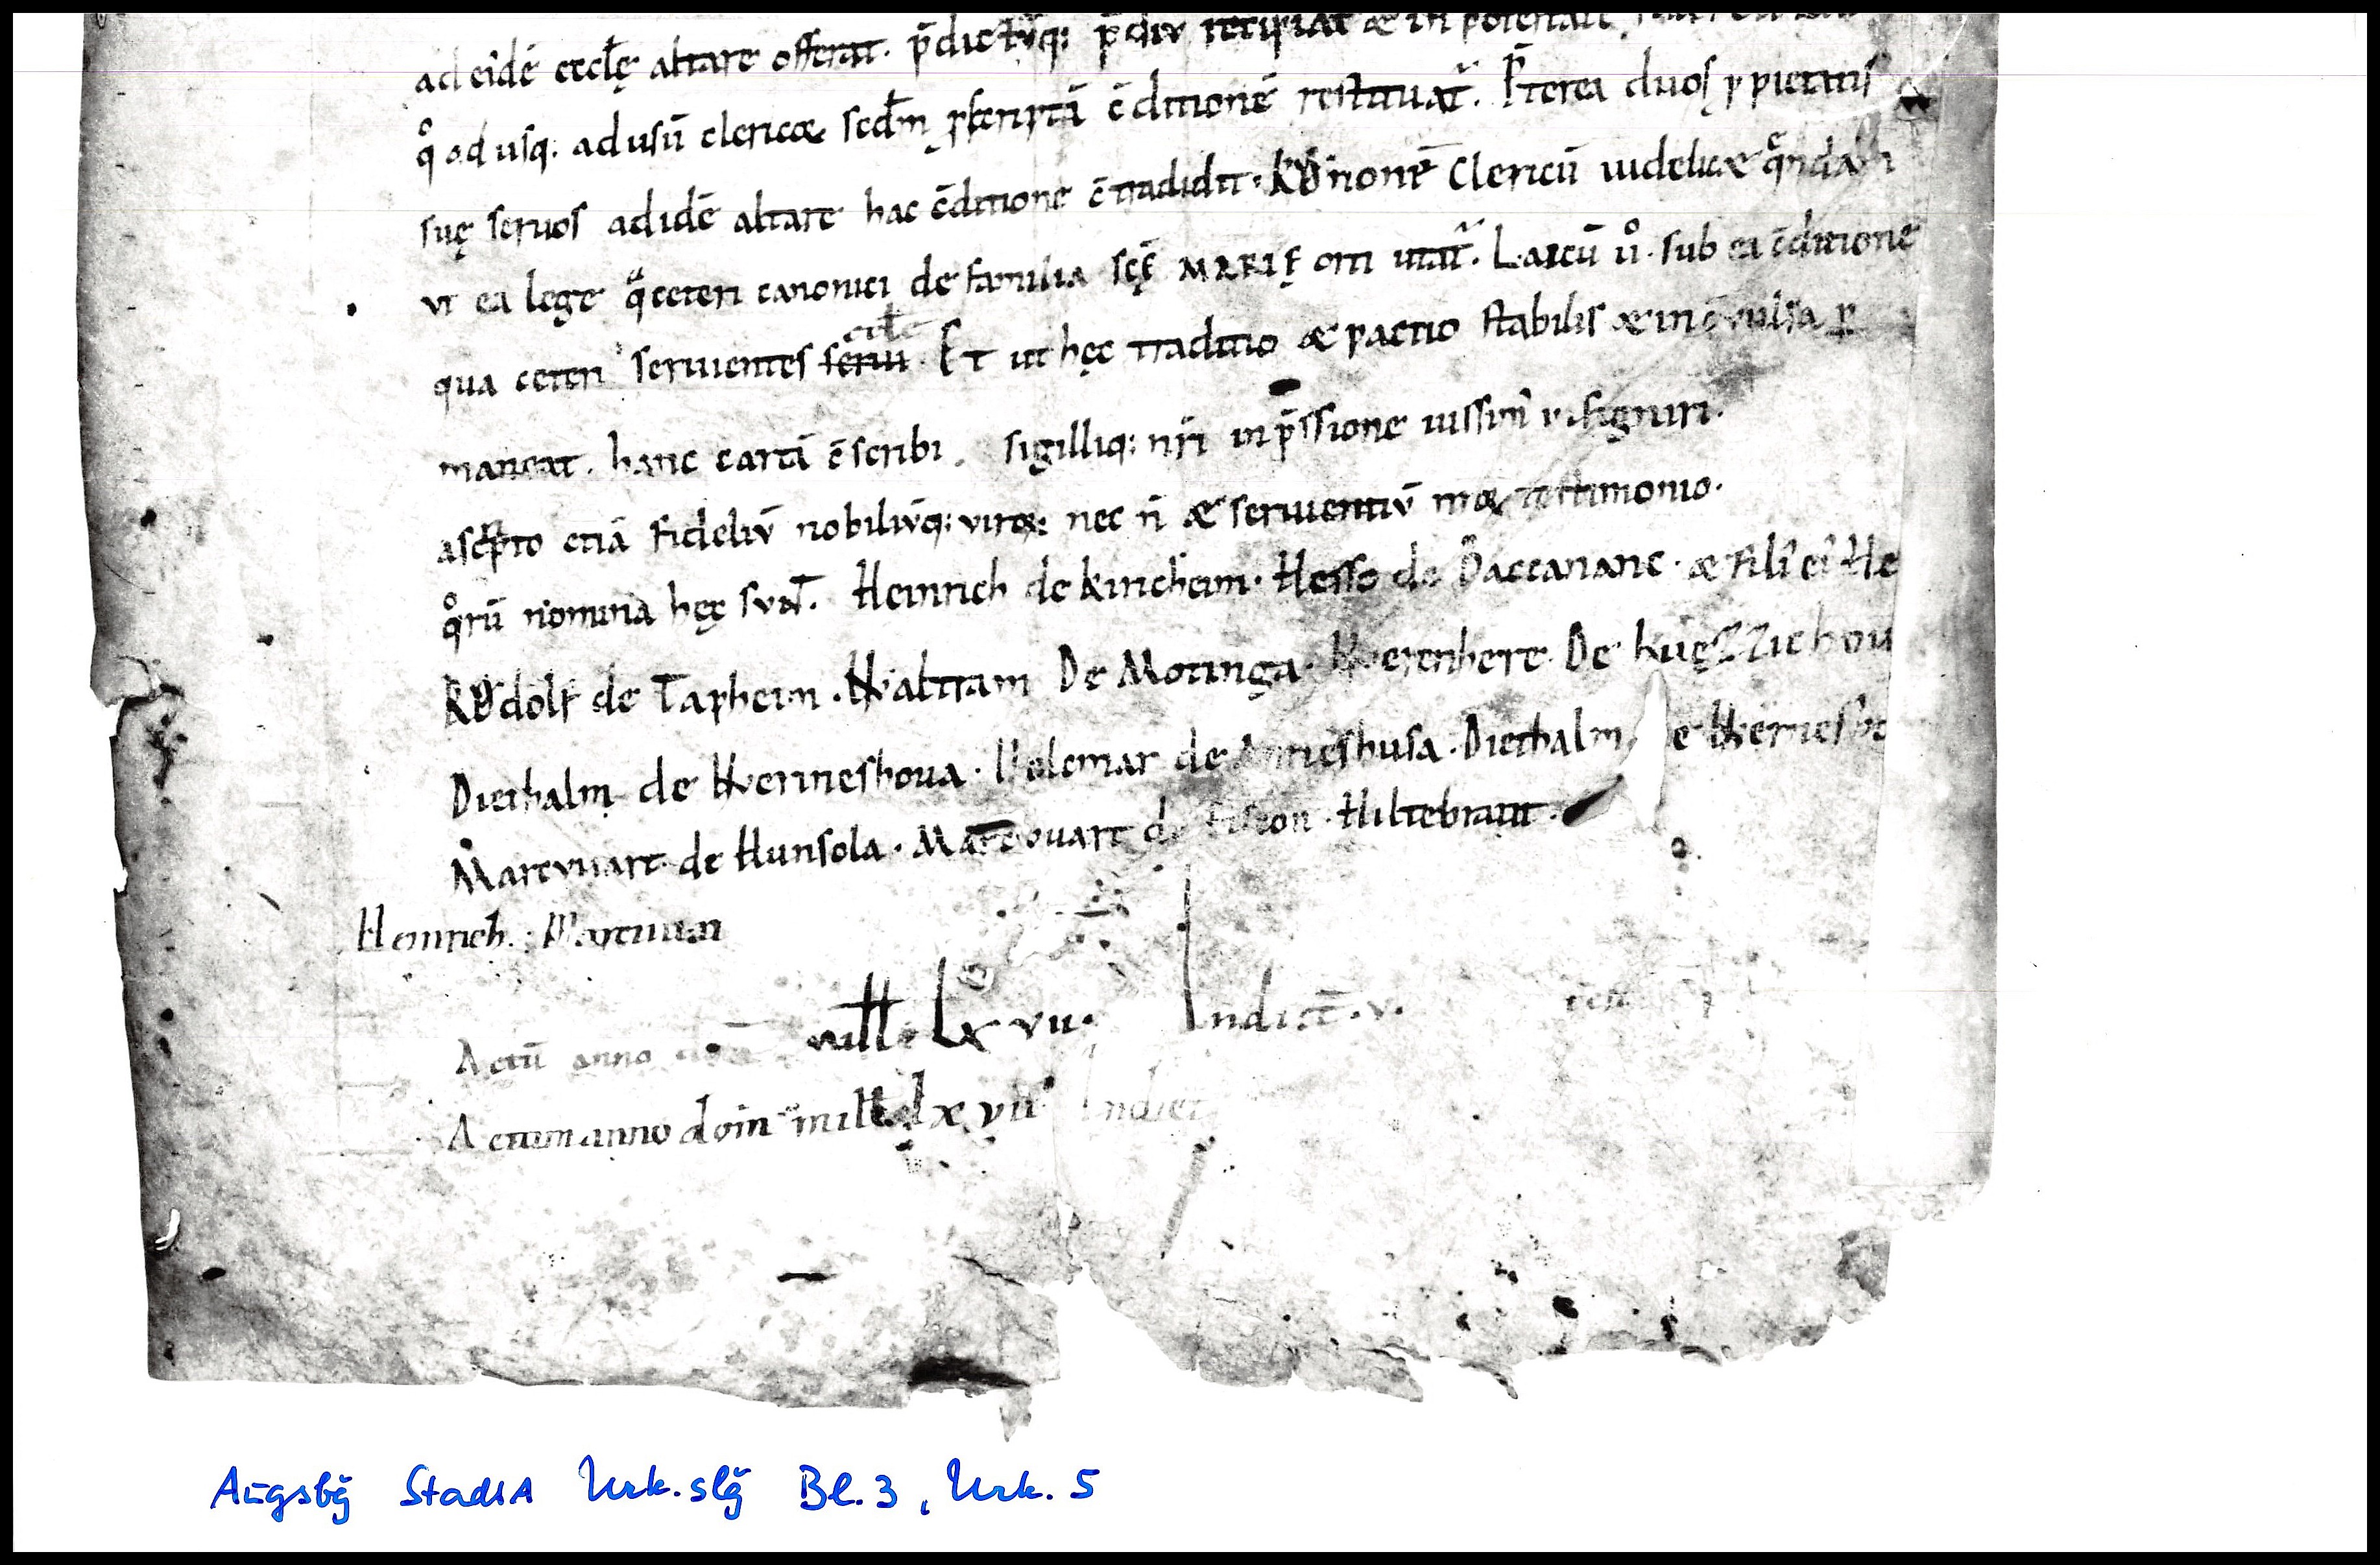 ad eidē eccłę altare offerat. p̄dictūq; p̄diū recipiat & in potestatē
qͦadusq. ad usū clericoꝝ scdm p̱scriptā c̄ditionē restituat᷑. P̄terea duos ꝓpietatis
suę seruos ad idē altare hac c̄ditione c̄tradidit. Rꝟͦnonē Clericū uidelic& qͣndam
vt ea lege qͣ ceteri canonici de familia scę MARIĘ orti utūt᷑. Laicū uͦ. sub ea c̄ditionē
qua ceteri seruientes serui. Et ut hęc traditio & pactio stabilis & inc̄vulsa ꝑ
maneat. hanc cartā c̄scribi. sigilliq; nr̄i inp̄ssione iussim᷒ insigniri.
ascͥpto etiā fideliū nobiliūq; viroꝝ nec n̄ & seruientiū nr̄oꝝ testimonio.
qͦrū nomina hęc svnt. Heinrich de Kiricheim. Hesso de Baccananc. & fili᷒ ei᷒ He
Rvͦdolf de Tapheim. Waltram De Motinga. Werenhere De
Diethalm de Werineshoua. Volcmar de husa. Diethalm e Werinesho
Marcvuart de Hunsola. Marcvuart de Hiltebrant.
Heinrich. Marcuuart
Actū anno mill̄e Lx vii. Indict̄. v.
Actum anno domī mill̄ lx vii Indict
Augsbg StadtA Urk.slg Bl. 3, Urk. 5